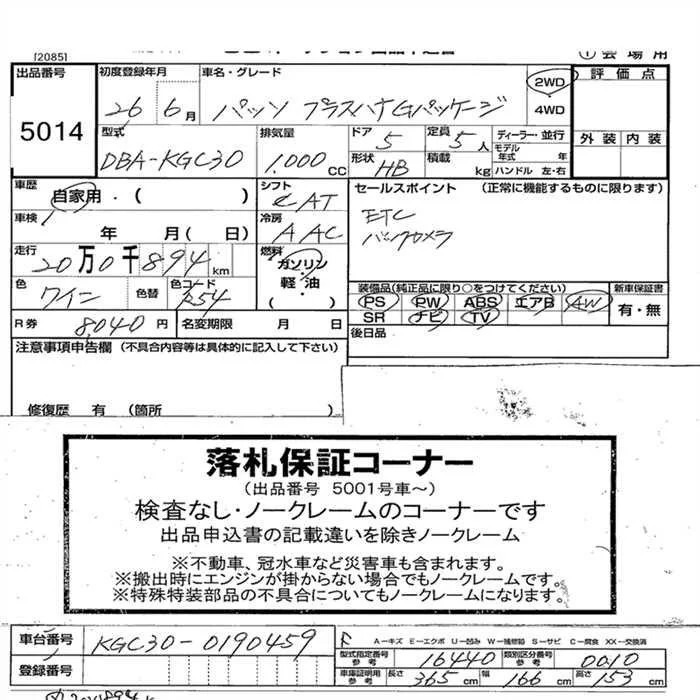 [2085]
① 会場用
出品番号 5014
初度登録年月 26 6月
車名・グレード パッソ プラスハナGパッケージ
2WD
4WD
評価点
外装 内装
型式 DBA-KGC30
排気量 1.000 CC
ドア 5
定員 5人
形状 HB
積載 kg
ディーラー・並行
モデル年式 年
ハンドル 左・右
車歴 自家用・( )
シフト CAT
セールスポイント (正常に機能するものに限ります)
ETC
バックカメラ
車検 年 月( 日)
冷房 AAC
走行 20万0千894km
燃料 ガソリン・軽油・( )
色 ワイン
色替
色コード R54
装備品(純正品に限り○をつけてください)
PS PW ABS エアB AW
SR ナビ TV
新車保証書
有・無
R券 8,040円
名変期限 月 日
後日品
注意事項申告欄 (不具合内容等は具体的に記入して下さい)
修復歴 有 (箇所 )
落札保証コーナー
(出品番号 5001号車~)
検査なし・ノークレームのコーナーです
出品申込書の記載違いを除きノークレーム
※不動車、冠水車など災害車も含まれます。
※搬出時にエンジンが掛からない場合でもノークレームです。
※特殊特装部品の不具合についてもノークレームになります。
車台番号 KGC30-0190459
F A-キズ E-エクボ U-凹み W-補修跡 S-サビ C-腐食 XX-交換済
型式指定番号 参考 16440
類別区分番号 参考 0010
登録番号
車庫証明用 参考 長さ 365cm 幅 166cm 高さ 153cm